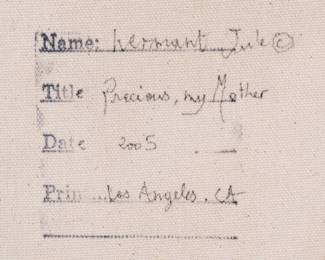 Name: Lermant Jule ©
Title Precious, my Mother
Date 2005
Prin Los Angeles. CA